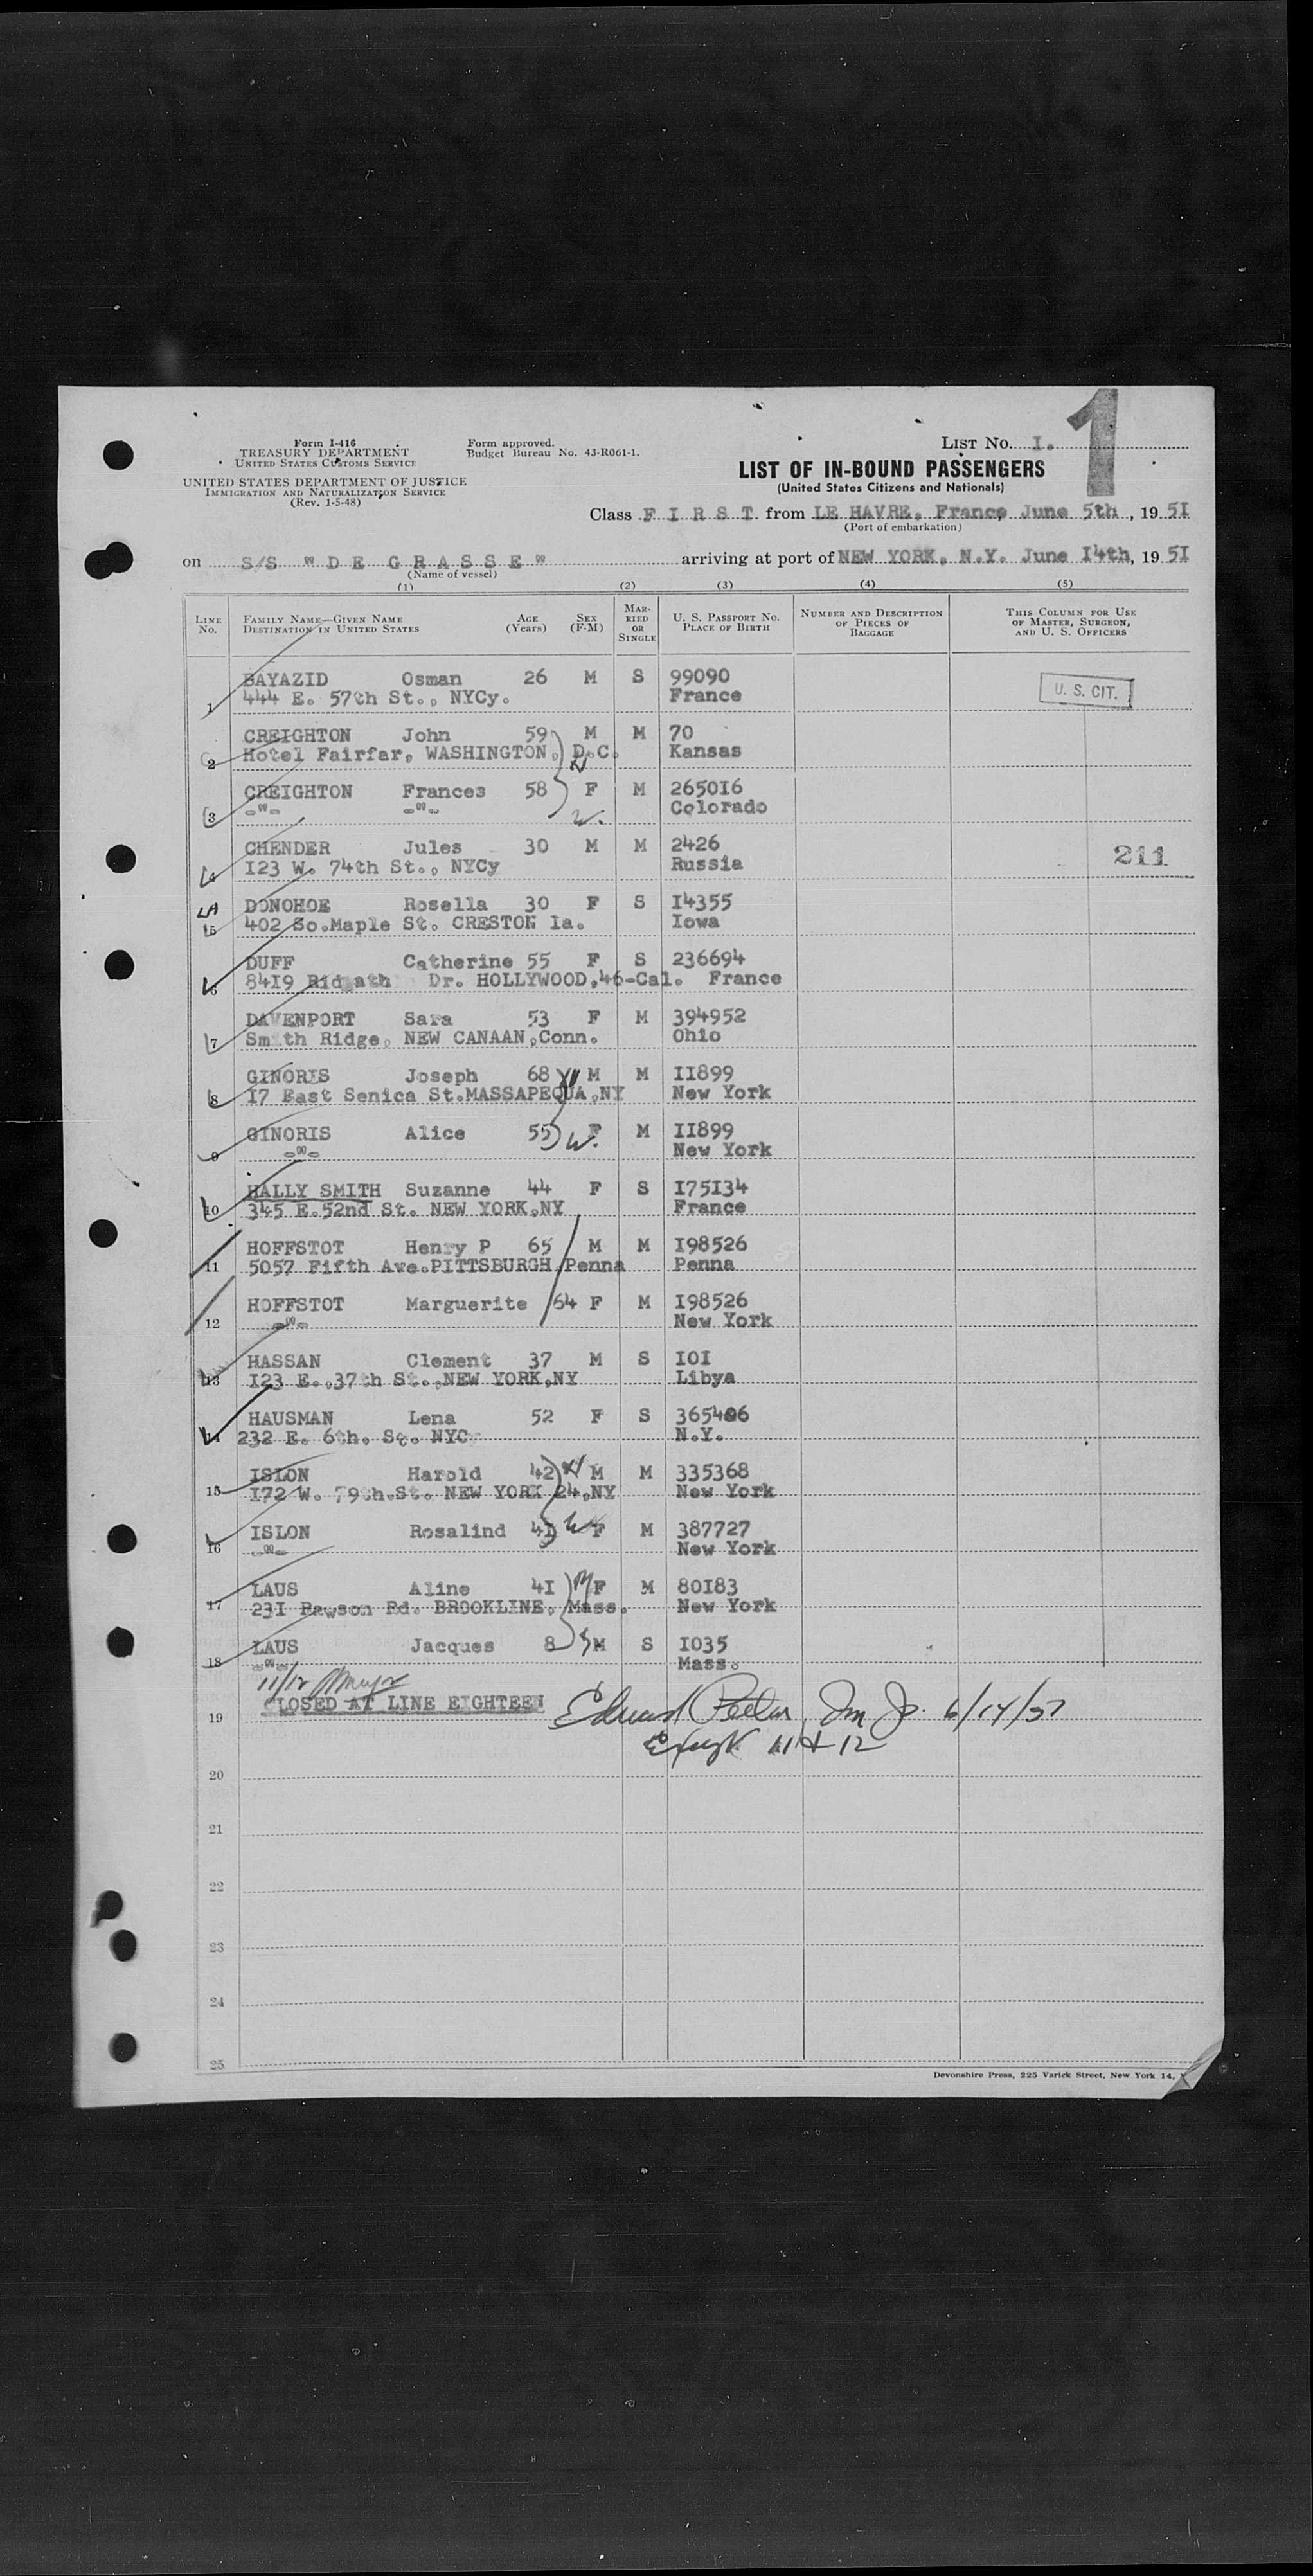 1
Form I-416
TREASURY DEPARTMENT
UNITED STATES CUSTOMS SERVICE
UNITED STATES DEPARTMENT OF JUSTICE
IMMIGRATION AND NATURALIZATION SERVICE
(Rev. 1-5-48)
Form approved.
Budget Bureau No. 43-R061-1.
LIST No. I.
LIST OF IN-BOUND PASSENGERS
(United States Citizens and Nationals)
Class F I R S T from LE HAVRE, France June 5th, 19 5I
(Port of embarkation)
on S/S "D E G R A S S E" arriving at port of NEW YORK, N.Y. June I4th, 19 5I
(Name of vessel)
(1) (2) (3) (4) (5)
LINE No. FAMILY NAME—GIVEN NAME DESTINATION IN UNITED STATES AGE (Years) SEX (F-M) MARRIED OR SINGLE U. S. PASSPORT No. PLACE OF BIRTH NUMBER AND DESCRIPTION OF PIECES OF BAGGAGE THIS COLUMN FOR USE OF MASTER, SURGEON, AND U. S. OFFICERS
BAYAZID Osman 26 M S 99090
1 444 E. 57th St., NYCy. France U. S. CIT.
CREIGHTON John 59 M M 70
2 Hotel Fairfar, WASHINGTON, D.C. Kansas
CREIGHTON Frances 58 F M 2650I6
3 -"- -"- W. Colorado
CHENDER Jules 30 M M 2426
4 I23 W. 74th St., NYCy Russia 211
DONOHOE Rosella 30 F S I4355
5 402 So.Maple St. CRESTON Ia. Iowa
DUFF Catherine 55 F S 236694
6 84I9 Rid ath Dr. HOLLYWOOD,46-Cal. France
DAVENPORT Sara 53 F M 394952
7 Smith Ridge, NEW CANAAN,Conn. Ohio
GINORIS Joseph 68 M M II899
8 I7 East Senica St.MASSAPEQUA,NY New York
GINORIS Alice 55 W. F M II899
9 -"- New York
HALLY SMITH Suzanne 44 F S I75I34
10 345 E.52nd St. NEW YORK,NY France
HOFFSTOT Henry P 65 M M I98526
11 5057 Fifth Ave.PITTSBURGH Penna Penna
HOFFSTOT Marguerite 64 F M I98526
12 -"- New York
HASSAN Clement 37 M S IOI
13 I23 E.,37th St.,NEW YORK,NY Libya
HAUSMAN Lena 52 F S 365406
14 232 E. 6th. St. NYC N.Y.
ISLON Harold 42 M M 335368
15 I72 W. 79th.St. NEW YORK 24,NY New York
ISLON Rosalind 4I W F M 387727
16 -"- New York
LAUS Aline 4I M F M 80I83
17 23I Rawson Rd. BROOKLINE, Mass. New York
LAUS Jacques 8 S M S I035
18 -"- Mass.
11/12
19 CLOSED AT LINE EIGHTEEN Edward 6/14/51
11 & 12
20
21
22
23
24
25
Devonshire Press, 225 Varick Street, New York 14,